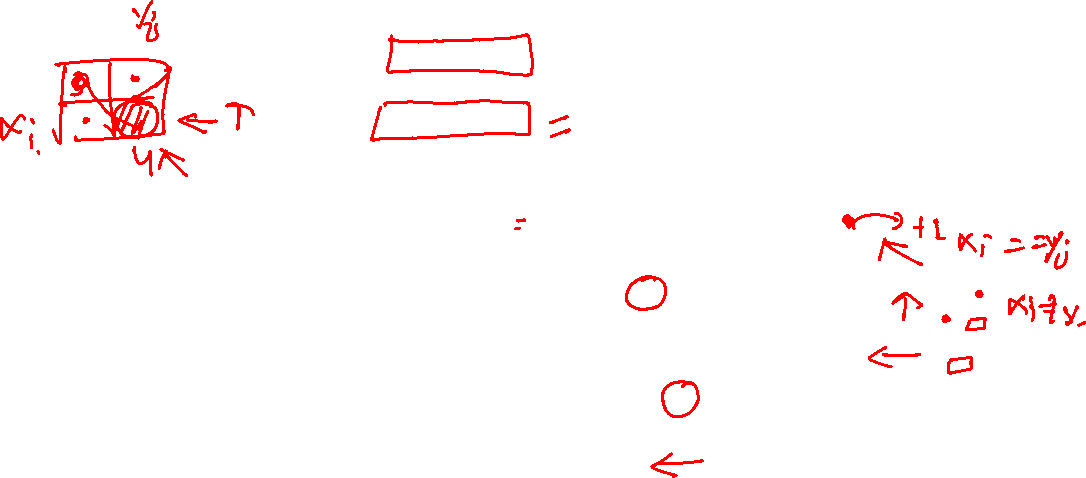 yj
xi
4
=
=
+1 xi == yj
xi ≠ y